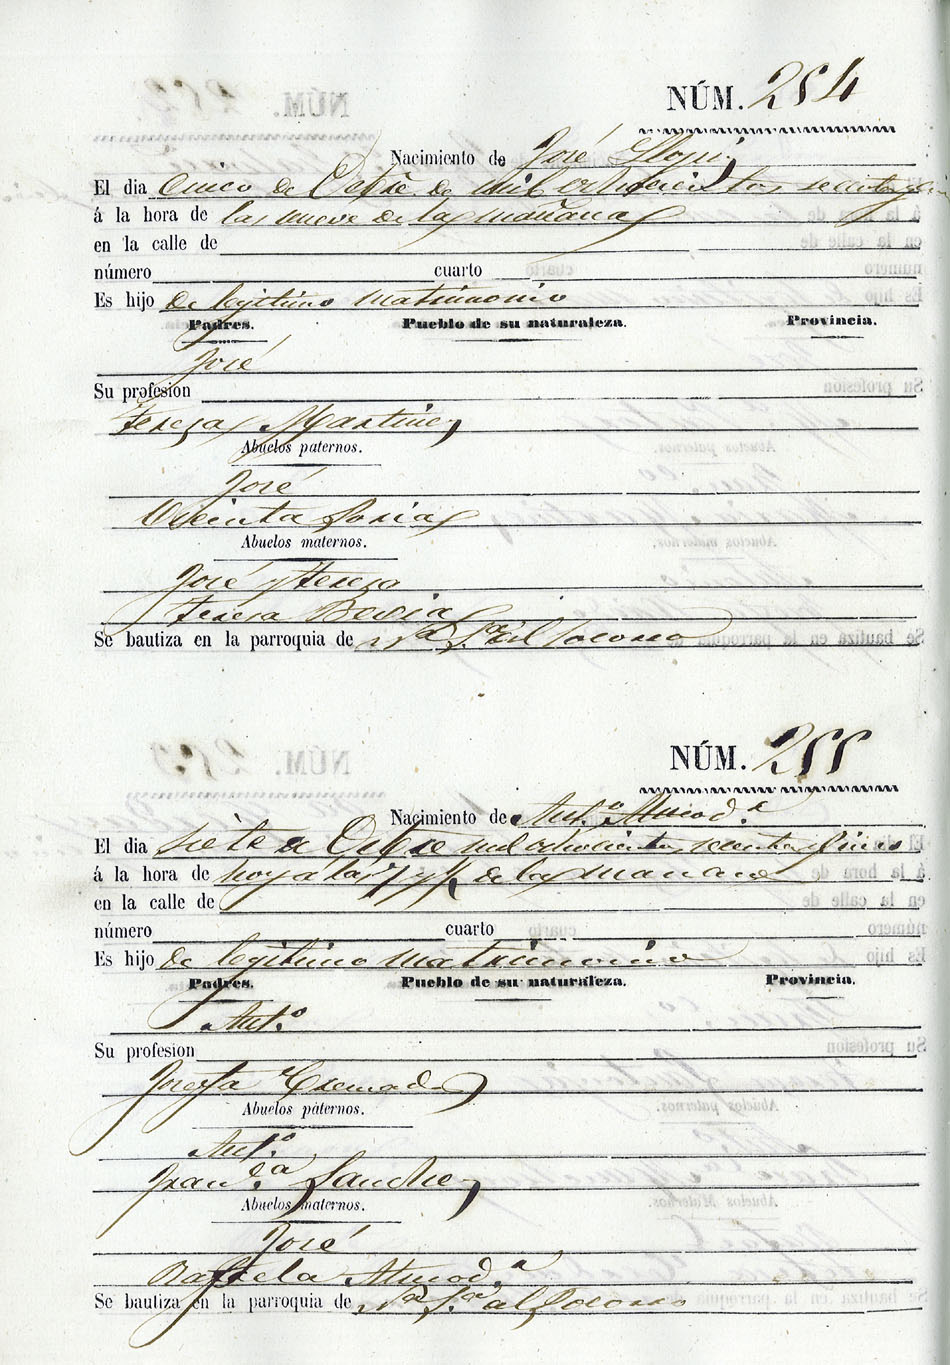 NÚM. 254
Nacimiento de José Llopis
El dia Cinco de Octbre de mil ochocientos sesenta y
á la hora de las nueve de la mañana
en la calle de
número cuarto
Es hijo de legitimo matrimonio
Padres. Pueblo de su naturaleza. Provincia.
José
Su profesion
Teresa Martinez
Abuelos paternos.
José
Vicenta Soria
Abuelos maternos.
José y Teresa
Teresa Bevia
Se bautiza en la parroquia de Nª Sª del Socorro
NÚM. 255
Nacimiento de Antº Almodª
El dia siete de Octbre mil ochocientos sesenta y cinco
á la hora de hoy á las 7 y ½ de la mañana
en la calle de
número cuarto
Es hijo de legitimo matrimonio
Padres. Pueblo de su naturaleza. Provincia.
Antº
Su profesion
Josefa
Abuelos paternos.
Antº
Franᶜª Sanchez
Abuelos maternos.
José
Rafaela Almodª
Se bautiza en la parroquia de Nª Sª del Socorro